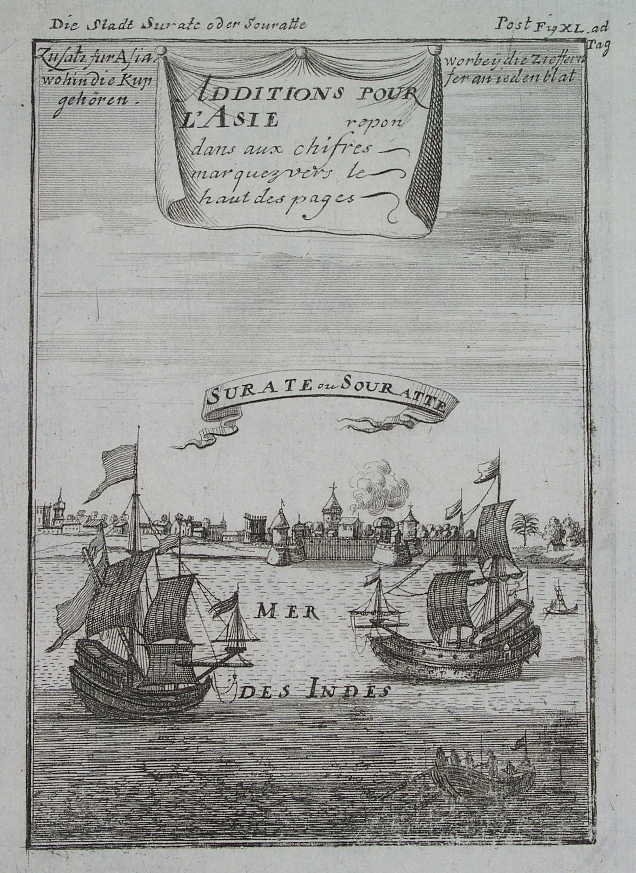 Die Stadt Surate oder Souratte
Post Fig XL. ad
Pag
Zusatz fur Asia.
wohin die Kup
gehören.
worbey die zieffern
fer an ieden blat
ADDITIONS POUR
L'ASIE repon
dans aux chifres
marquez vers le
haut des pages
SURATE ou SOURATTE
MER
DES INDES